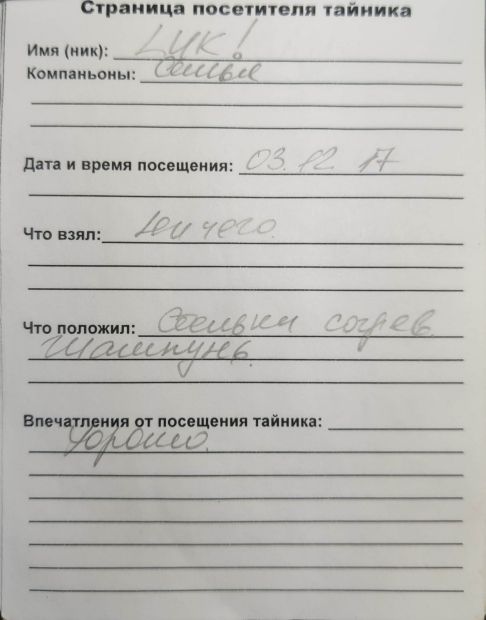 Страница посетителя тайника
Имя (ник): ЦУК!
Компаньоны: Семья
Дата и время посещения: 03.12.17
Что взял: Ничего.
Что положил: Стельки согрев.
Шампунь.
Впечатления от посещения тайника:
Хорошо.